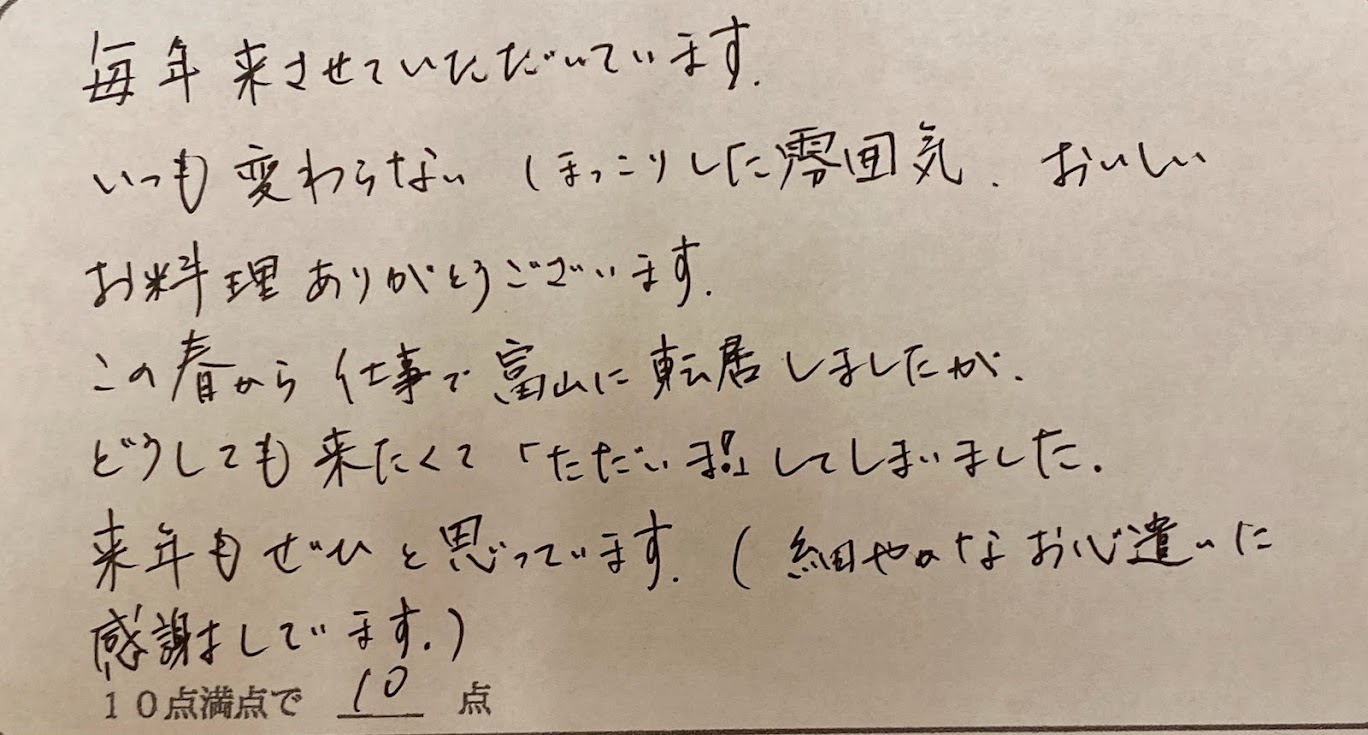 毎年来させていただいています.
いつも変わらない ほっこりした雰囲気、おいしい
お料理ありがとうございます.
この春から仕事で富山に転居しましたが、
どうしても来たくて「ただいま!」してしまいました.
来年もぜひと思っています.(細やかなお心遣いに
感謝してます.)
10点満点で 10 点